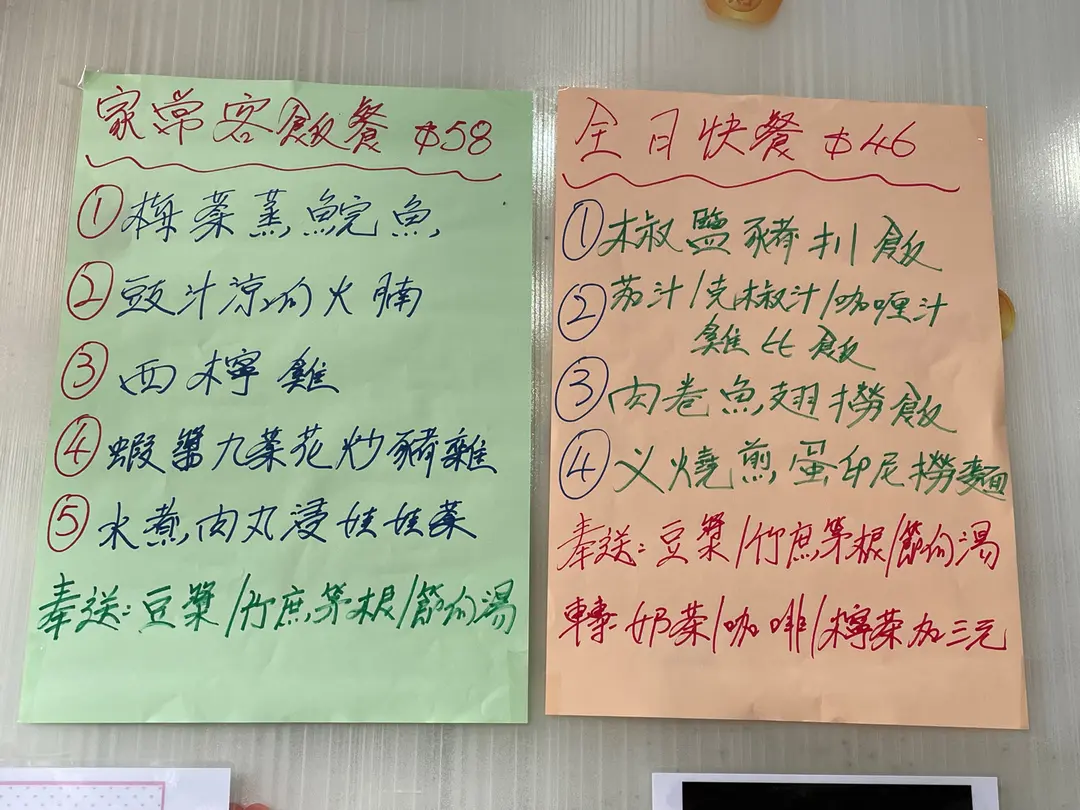 家常客飯餐 $58
① 梅菜蒸鯇魚
② 豉汁涼瓜火腩
③ 西檸雞
④ 蝦醬九菜花炒豬雜
⑤ 水煮肉丸浸娃娃菜
奉送：豆漿/竹庶茅根/節瓜湯
全日快餐 $46
① 椒鹽豬扒飯
② 茄汁/克椒汁/咖喱汁
雞比飯
③ 肉卷魚翅撈飯
④ 义燒煎蛋印尼撈麵
奉送：豆漿/竹庶茅根/節瓜湯
轉：奶茶/咖啡/檸茶加三元